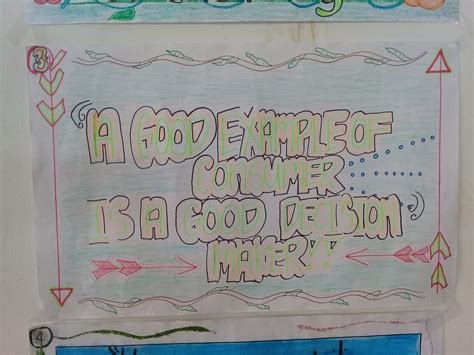 3
"A GOOD EXAMPLE OF
CONSUMER
IS A GOOD DECISION"
MAKER!!
4